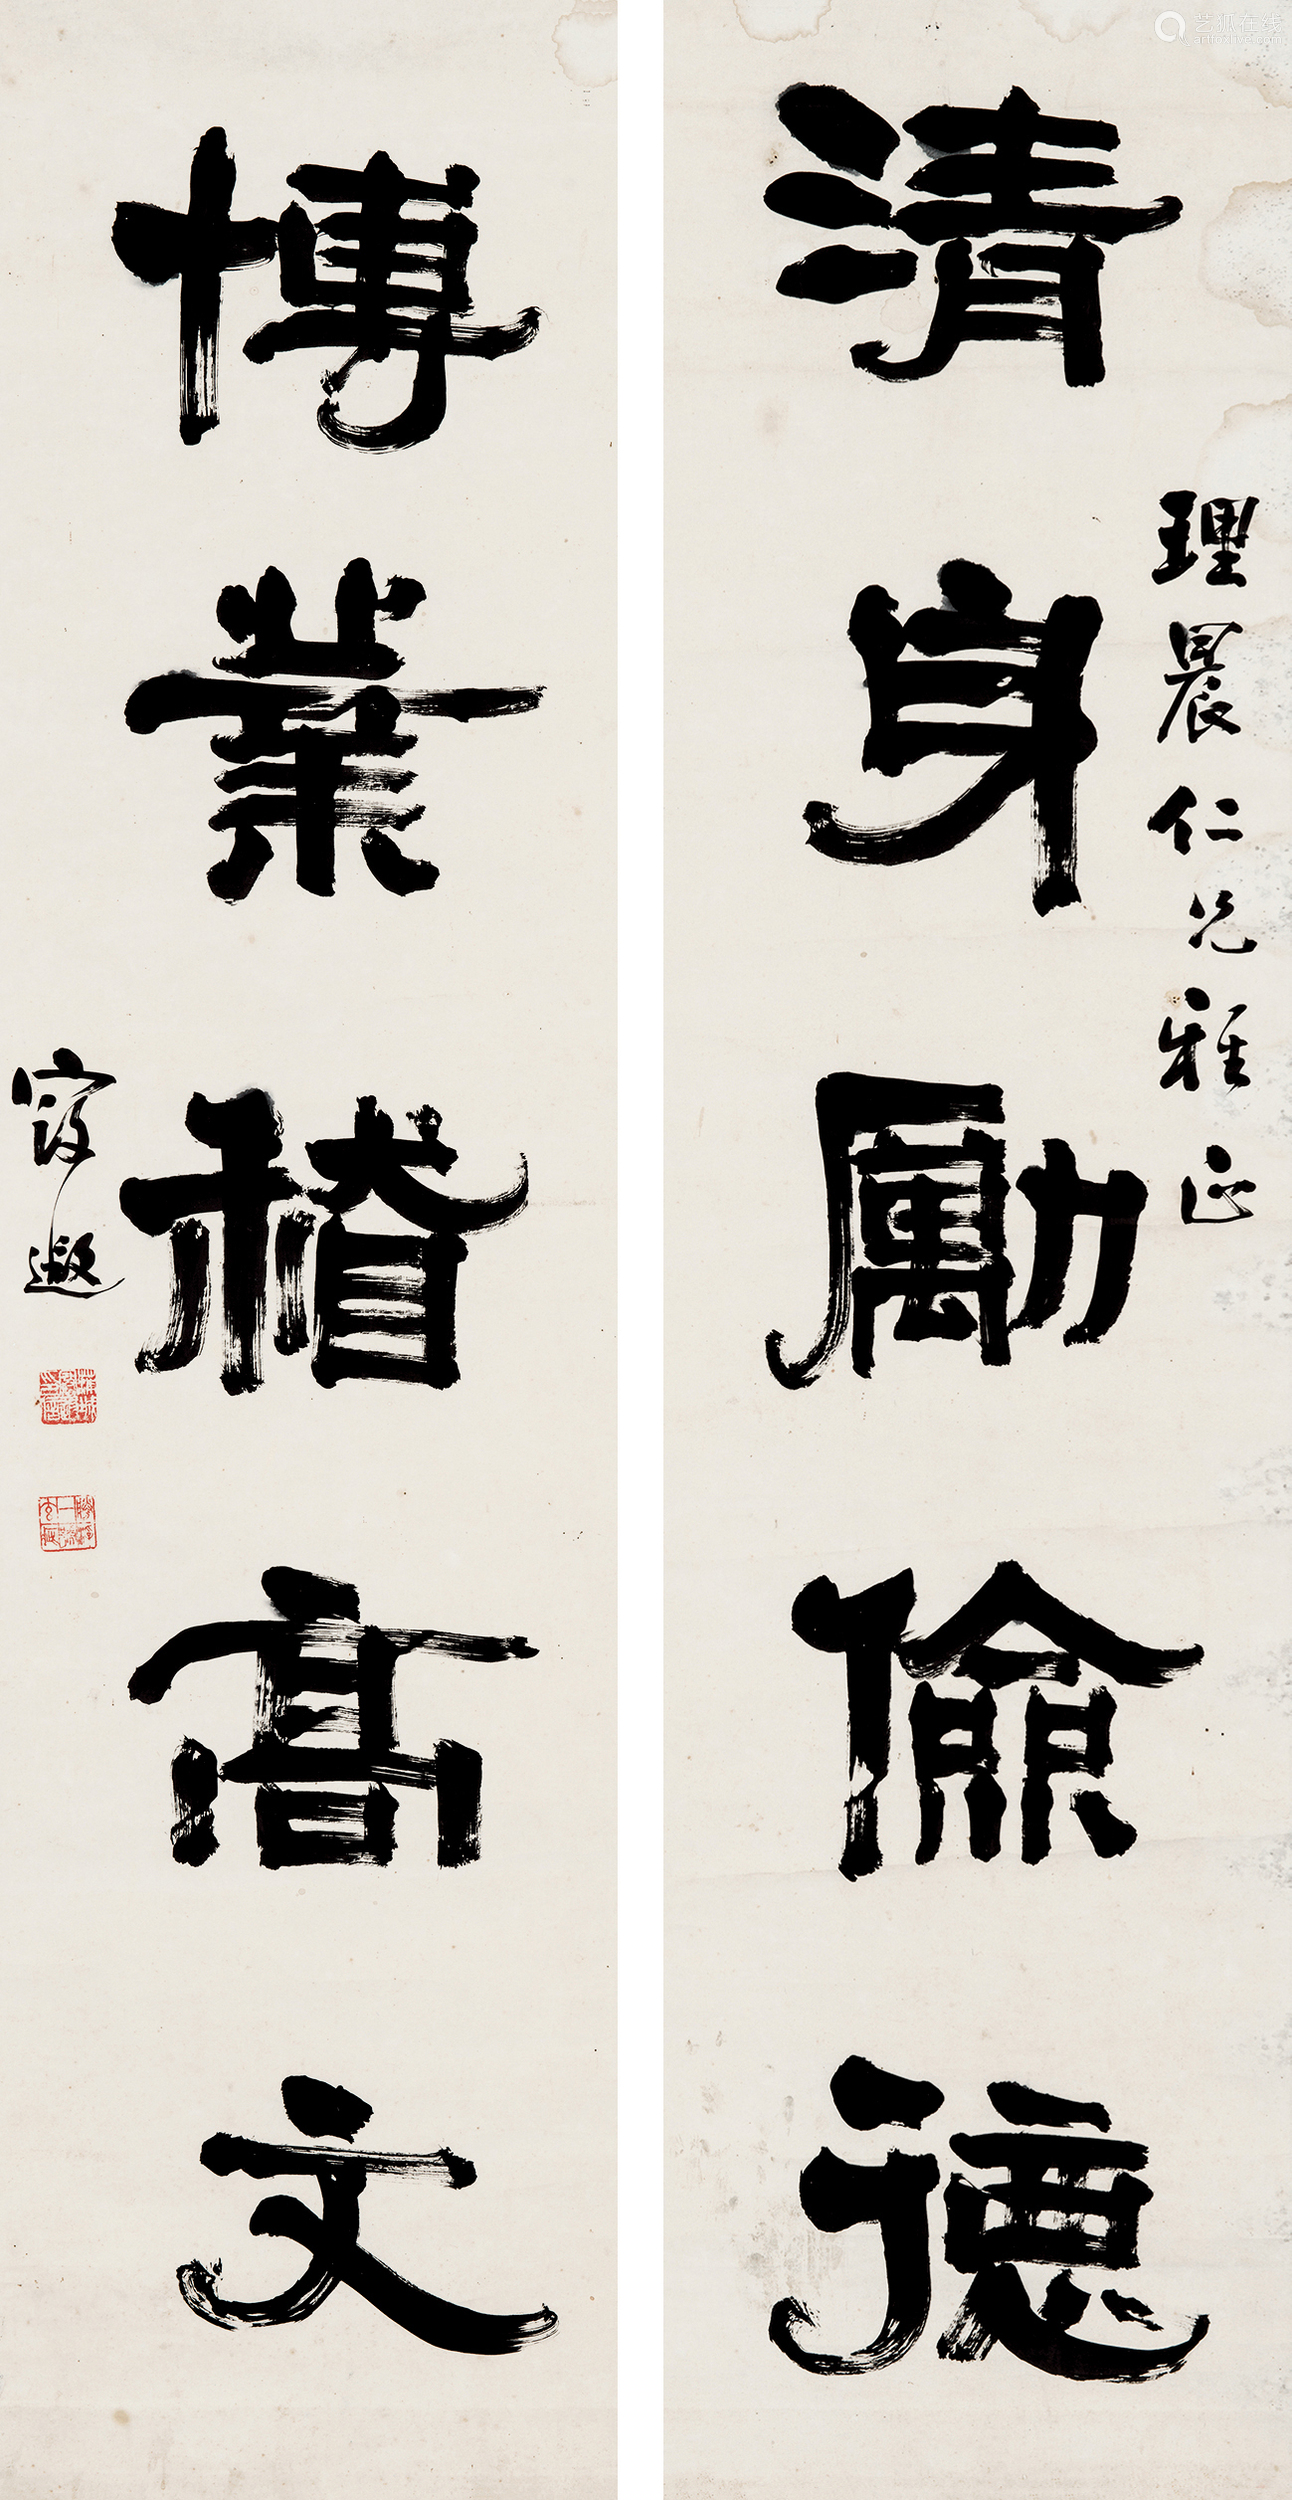 清身勵儉德
理晨仁兄雅正
博業稽高文
寱遐
艺狐在线
artfoxlive.com